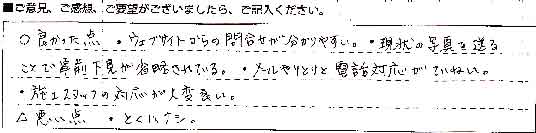 ■ご意見、ご感想、ご要望がございましたら、ご記入ください。
○良かった点 ・ウェブサイトからの問合せが分かりやすい。・現状の写真を送る
ことで事前下見が省略されている。・メールやりとりと電話対応がていねい。
・施工スタッフの対応が大変良い。
△悪い点 ・とくにナシ。